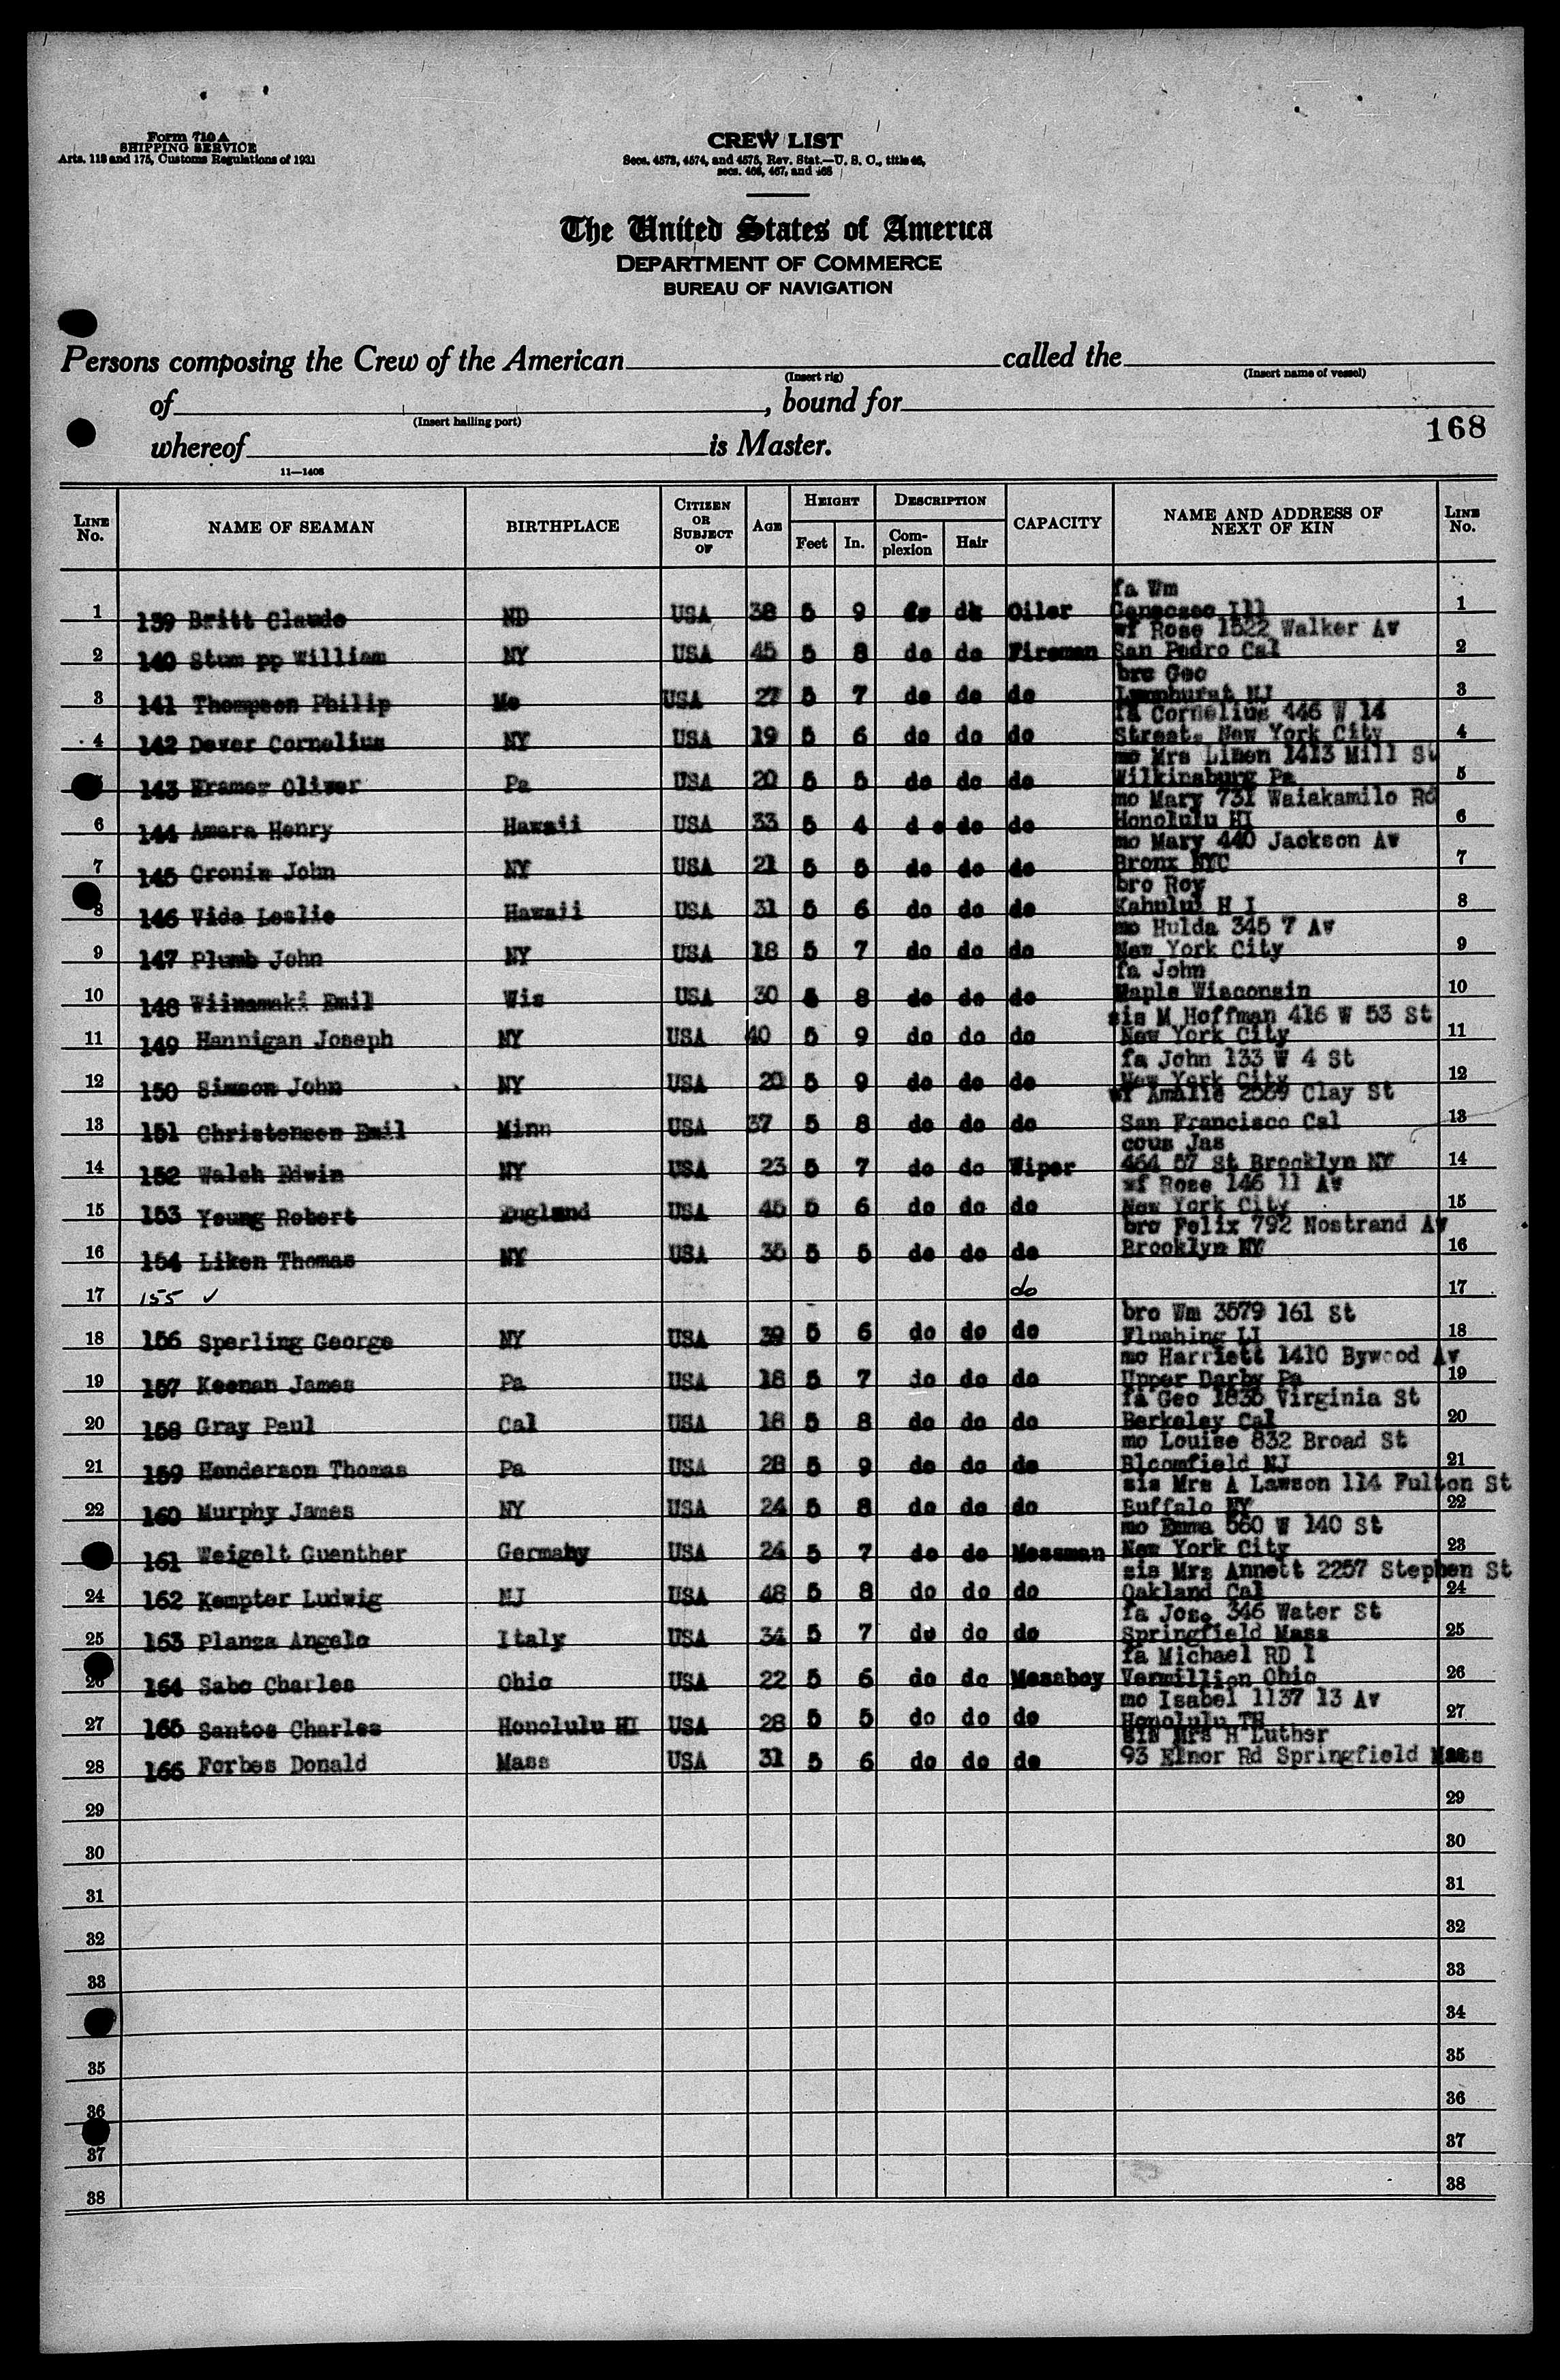 Form 710 A
SHIPPING SERVICE
Arts. 118 and 175, Customs Regulations of 1931
CREW LIST
Secs. 4573, 4574, and 4575, Rev. Stat.—U. S. C., title 46,
secs. 466, 467, and 468
The United States of America
DEPARTMENT OF COMMERCE
BUREAU OF NAVIGATION
Persons composing the Crew of the American called the
(Insert rig) (Insert name of vessel)
of , bound for
(Insert hailing port)
168
whereof is Master.
11—1406
LINE No. NAME OF SEAMAN BIRTHPLACE CITIZEN OR SUBJECT OF AGE HEIGHT Feet In. DESCRIPTION Complexion Hair CAPACITY NAME AND ADDRESS OF NEXT OF KIN LINE No.
fa Wm
1 139 Britt Claude ND USA 38 5 9 dk Oiler Ill 1
wf Rose 1522 Walker Av
2 140 Stum pp William NY USA 45 5 8 do do Fireman San Pedro Cal 2
bro Geo
3 141 Thompson Philip USA 27 5 7 do do do Lynnhurst NJ 3
fa Cornelius 446 W 14
4 142 Dever Cornelius NY USA 19 5 6 do do do Street. New York City 4
mo Mrs Linen 1413 Mill St
143 Kramer Oliver Pa USA 20 5 5 do do do Wilkinsburg Pa 5
mo Mary 731 Waiakamilo Rd
6 144 Amara Henry Hawaii USA 33 5 4 d o do do Honolulu HI 6
mo Mary 440 Jackson Av
7 145 Cronin John NY USA 21 5 5 do do do Bronx NYC 7
bro Roy
8 146 Vida Leslie Hawaii USA 31 5 6 do do do Kahului H I 8
mo Hulda 345 7 Av
9 147 Plumb John NY USA 18 5 7 do do do New York City 9
fa John
10 148 Wiinamaki Emil Wis USA 30 5 8 do do do Maple Wisconsin 10
sis M Hoffman 416 W 53 St
11 149 Hannigan Joseph NY USA 40 5 9 do do do New York City 11
fa John 133 W 4 St
12 150 Simson John NY USA 20 5 9 do do do New York City 12
wf Amalie 2559 Clay St
13 151 Christensen Emil Minn USA 37 5 8 do do do San Francisco Cal 13
cous Jas
14 152 Walsh Edwin NY USA 23 5 7 do do Wiper 464 57 St Brooklyn NY 14
wf Rose 146 11 Av
15 153 Young Robert England USA 45 5 6 do do do New York City 15
bro Felix 792 Nostrand Av
16 154 Liken Thomas NY USA 35 5 5 do do do Brooklyn NY 16
17 155 ✓ do 17
bro Wm 3579 161 St
18 156 Sperling George NY USA 39 5 6 do do do Flushing LI 18
mo Harriett 1410 Bywood Av
19 157 Keenan James Pa USA 18 5 7 do do do Upper Darby Pa 19
fa Geo 1835 Virginia St
20 158 Gray Paul Cal USA 18 5 8 do do do Berkeley Cal 20
mo Louise 832 Broad St
21 159 Henderson Thomas Pa USA 28 5 9 do do do Bloomfield NJ 21
sis Mrs A Lawson 114 Fulton St
22 160 Murphy James NY USA 24 5 8 do do do Buffalo NY 22
mo Emma 560 W 140 St
161 Weigelt Guenther Germany USA 24 5 7 do do Messman New York City 23
sis Mrs Annett 2257 Stephen St
24 162 Kempter Ludwig NJ USA 48 5 8 do do do Oakland Cal 24
fa Jos. 346 Water St
25 163 Planza Angelo Italy USA 34 5 7 do do do Springfield Mass 25
fa Michael RD 1
26 164 Sabo Charles Ohio USA 22 5 6 do do Messboy Vermillion Ohio 26
mo Isabel 1137 13 Av
27 165 Santos Charles Honolulu HI USA 28 5 5 do do do Honolulu TH 27
sis Mrs H Luther
28 166 Forbes Donald Mass USA 31 5 6 do do do 93 Elnor Rd Springfield Mass
29 29
30 30
31 31
32 32
33 33
34
35 35
36 36
37 37
38 38